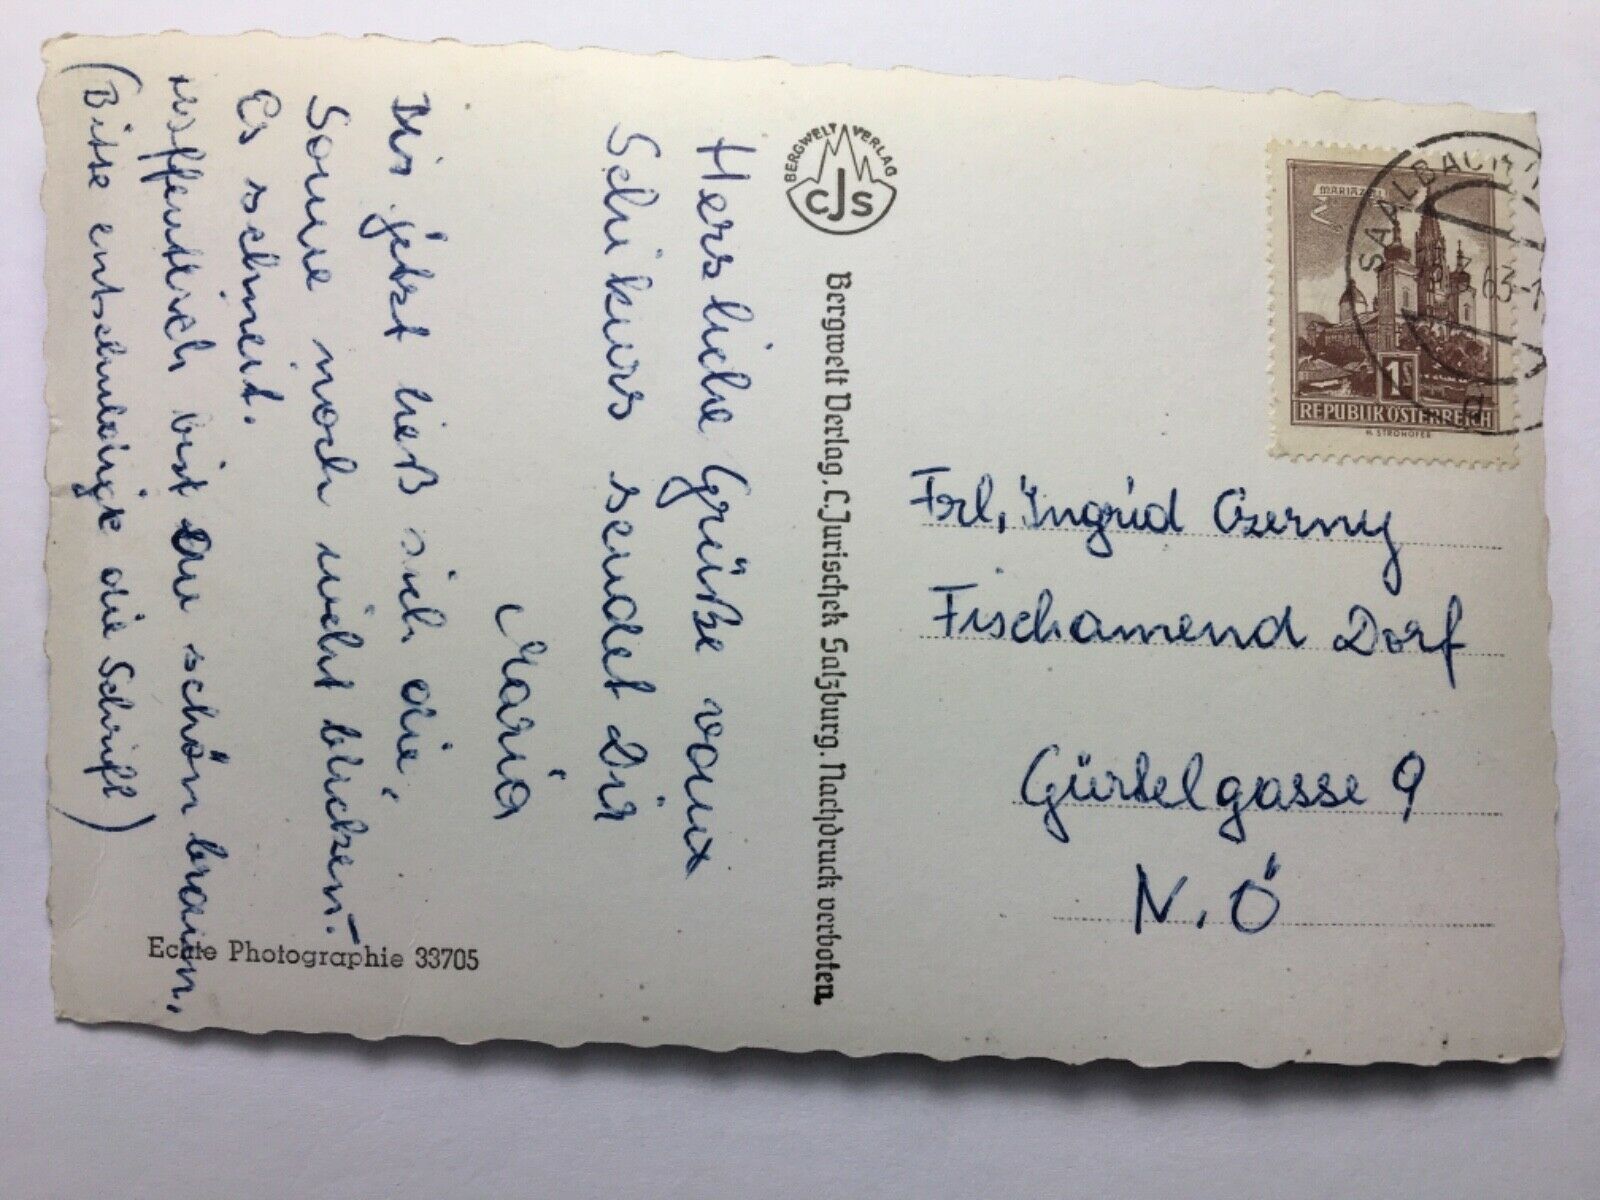 Herzliche Grüße vom
Schikurs sendet Dir
Maria
Bis jetzt ließ sich die,
Sonne noch nicht blicken.-
Es schneit.
Hoffentlich bist Du schön braun,
(Bitte entschuldige die Schrift)
Echte Photographie 33705
BERGWELT VERLAG
CJS
Bergwelt Verlag, C. Jurischek Salzburg. Nachdruck verboten.
MARIAZELL
1S
REPUBLIK ÖSTERREICH
H. STROHOFER
SAALBACH
63-1
Frl. Ingrid Czerny
Fischamend Dorf
Gürtelgasse 9
N.Ö